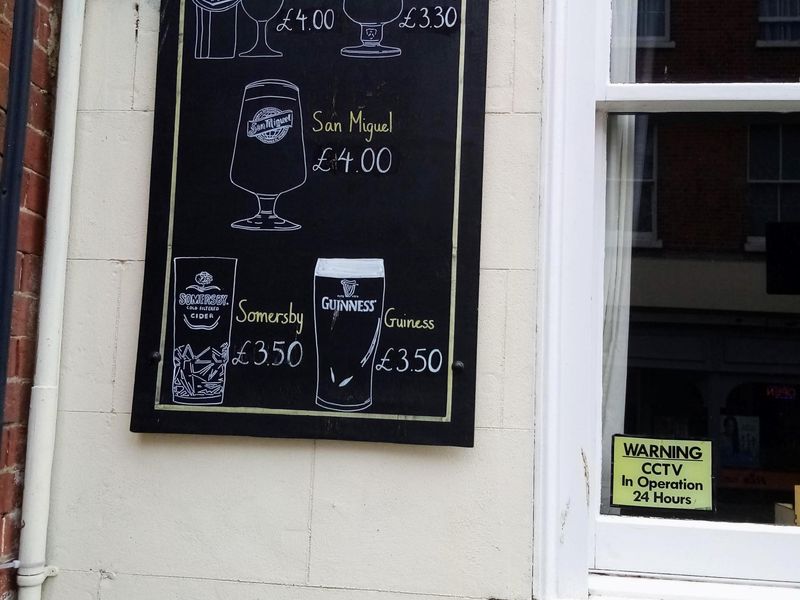 £4.00
£3.30
San Miguel
San Miguel
£4.00
SOMERSBY
COLD FILTERED
CIDER
Somersby
£3.50
GUINNESS
Guiness
£3.50
WARNING
CCTV
In Operation
24 Hours